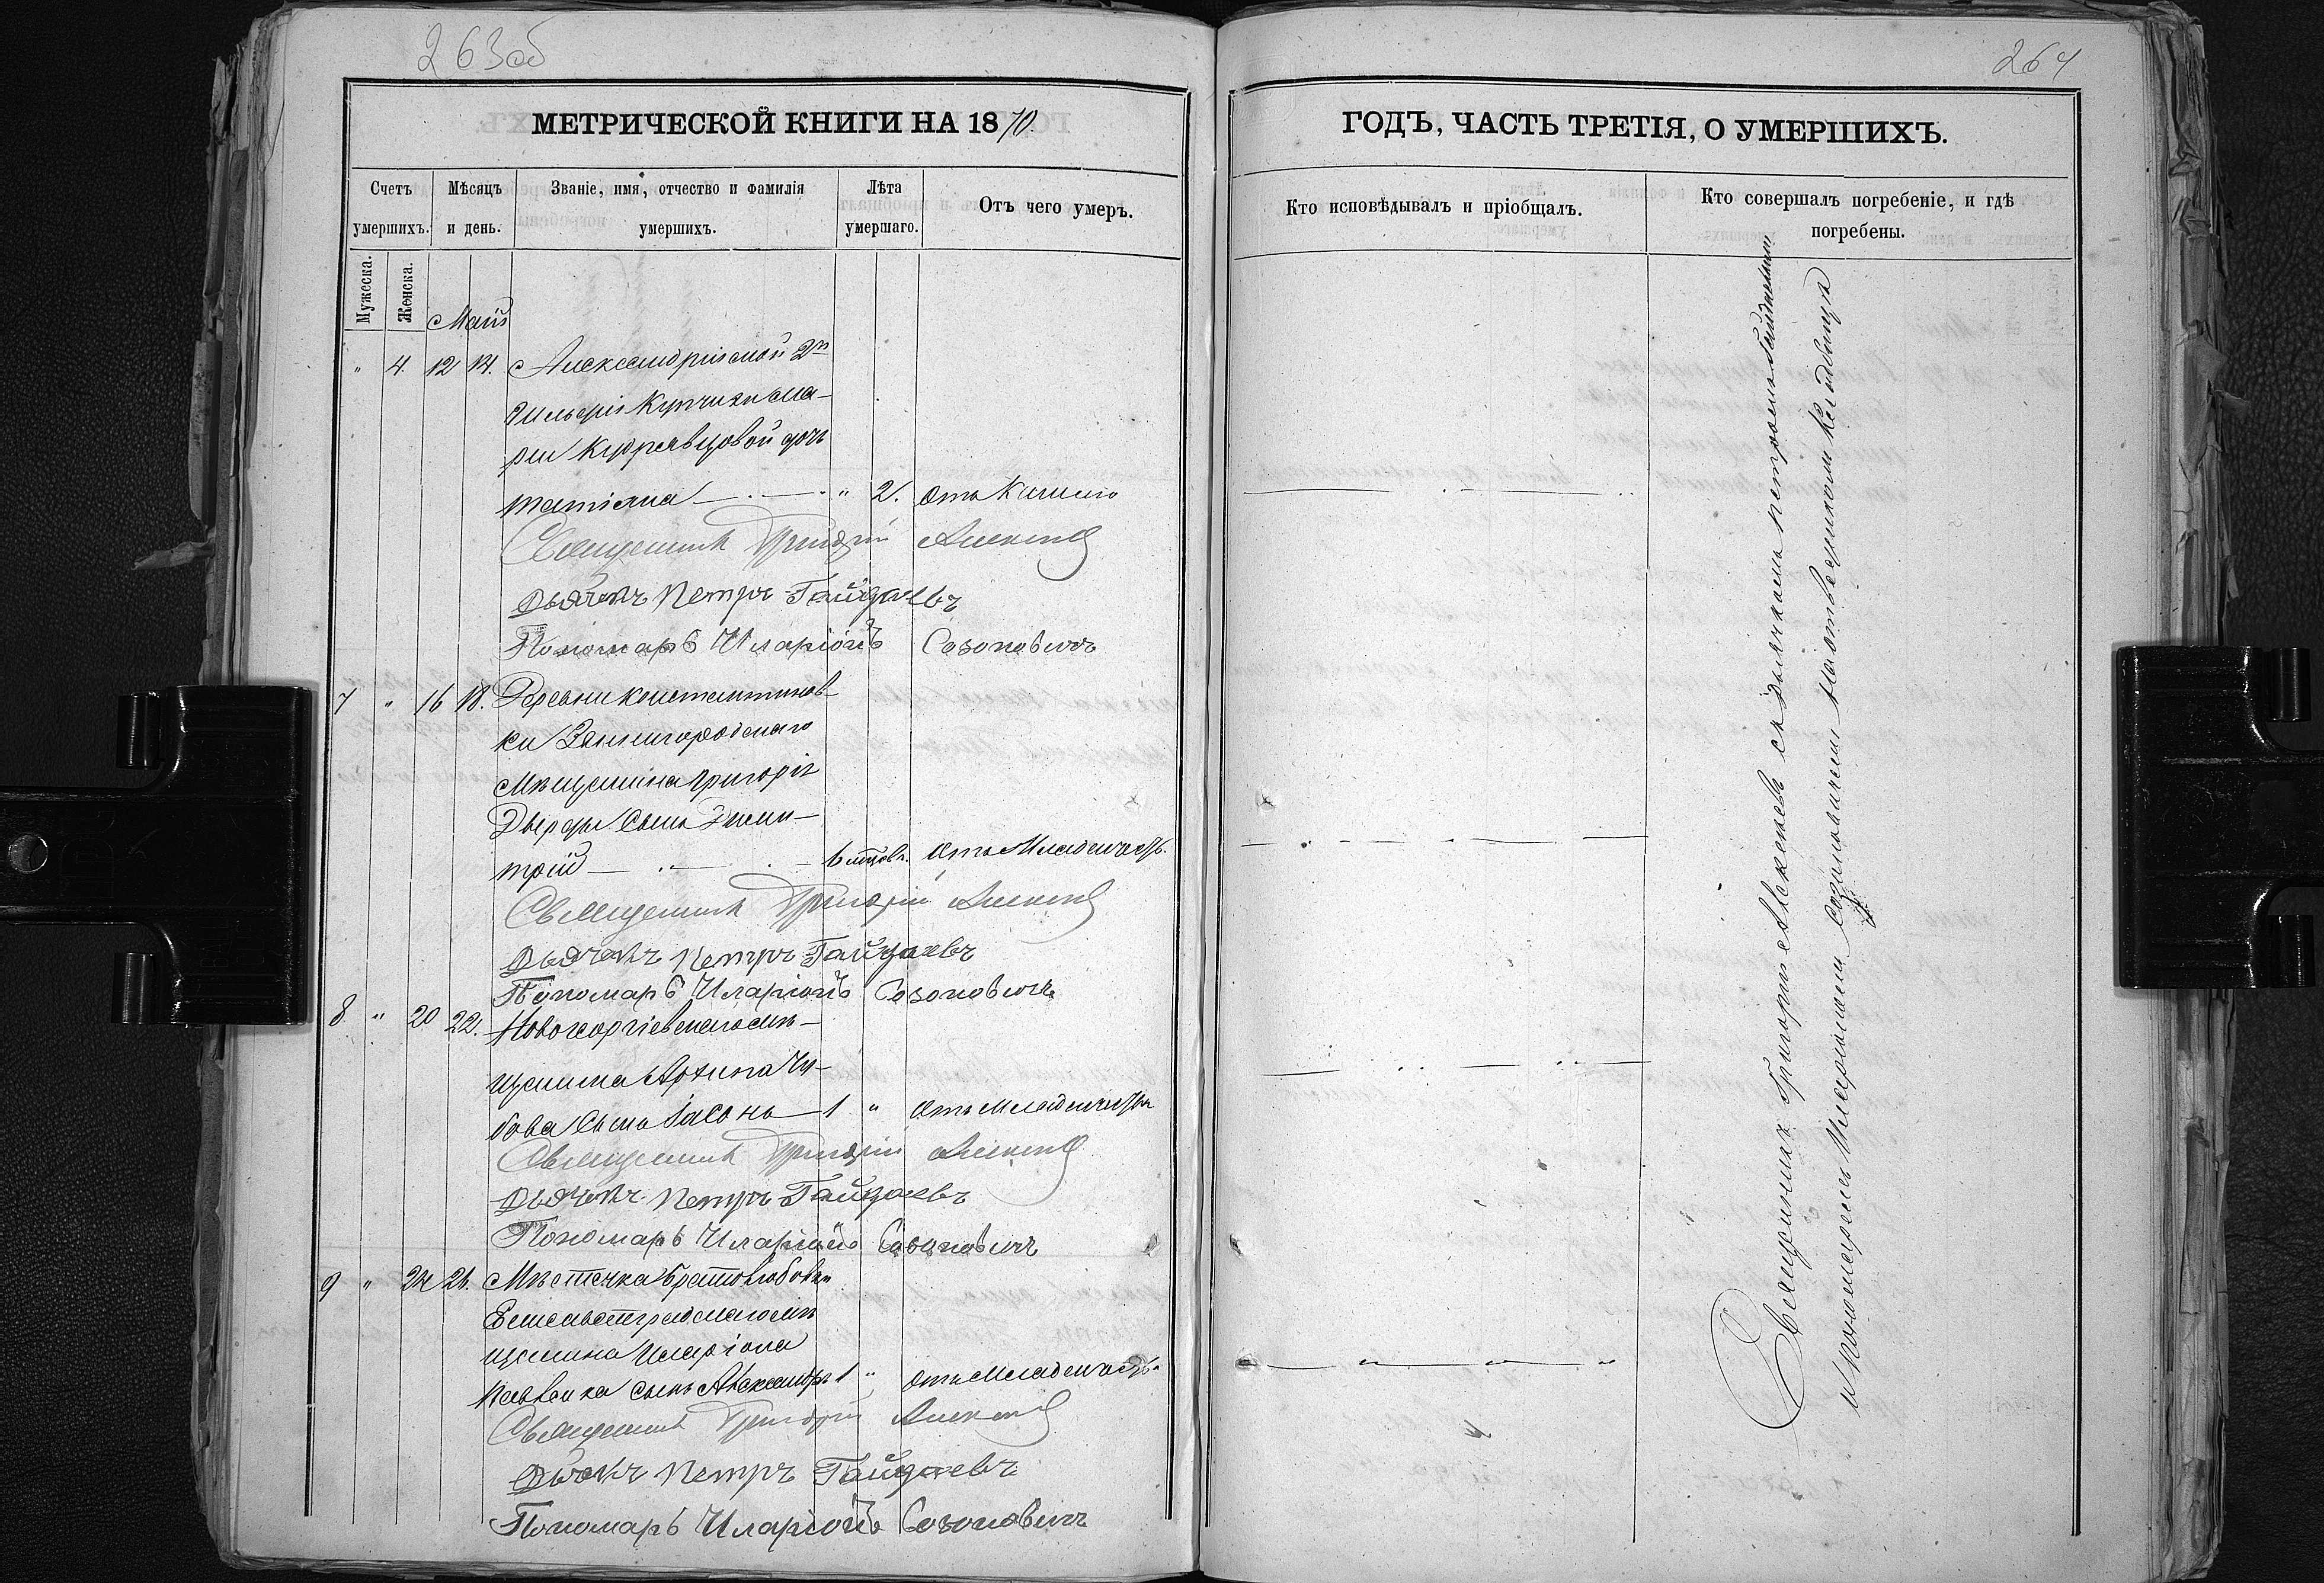 263об
МЕТРИЧЕСКОЙ КНИГИ НА 1870.
Счетъ умершихъ.
Мѣсяцъ и день.
Званіе, имя, отчество и фамилія умершихъ.
Лѣта умершаго.
Отъ чего умеръ.
Мужеска.
Женска.
Май
" 4. 12 14. Александрійской 2й
Гильдіи Купчихи Ма-
ріи Кудрявцовой дочь
Татіяна — " 2. Отъ Кашлю
Священникъ Григорій Алексѣевъ
Дьячекъ Петръ Гайдаевъ
Пономарь Иларіонъ Созоновичъ
7 " 16 18. Деревни Константинов-
ки Звенигородскаго
Мѣщанина Григорія
сынъ Дими-
трій — 6 Отъ Младенческ.
Священникъ Григорій Алексѣевъ
Дьячекъ Петръ Гайдаевъ
Пономарь Иларіонъ Созоновичъ
8 " 20 22. Новогеоргіевскаго мѣ-
щанина Архипа Чу-
бова сынъ Іасонъ — 1 " Отъ Младенческ
Священникъ Григорій Алексѣевъ
Дьячекъ Петръ Гайдаевъ
Пономарь Иларіонъ Созоновичъ
9 " 24 26. Мѣстечка Братолюбовки
Елисаветградскаго мѣ-
щанина Иларіона
сынъ Александръ 1 " Отъ Младенческ.
Священникъ Григорій Алексѣевъ
Дьячекъ Петръ Гайдаевъ
Пономарь Иларіонъ Созоновичъ
264
ГОДЪ, ЧАСТЬ ТРЕТІЯ, О УМЕРШИХЪ.
Кто исповѣдывалъ и пріобщалъ.
Кто совершалъ погребеніе, и гдѣ
погребены.
Священникъ Григорій Алексѣевъ съ дьячкомъ Петромъ Гайдаевымъ
и пономаремъ Иларіономъ Созоновичемъ На отведенномъ Кладбищѣ